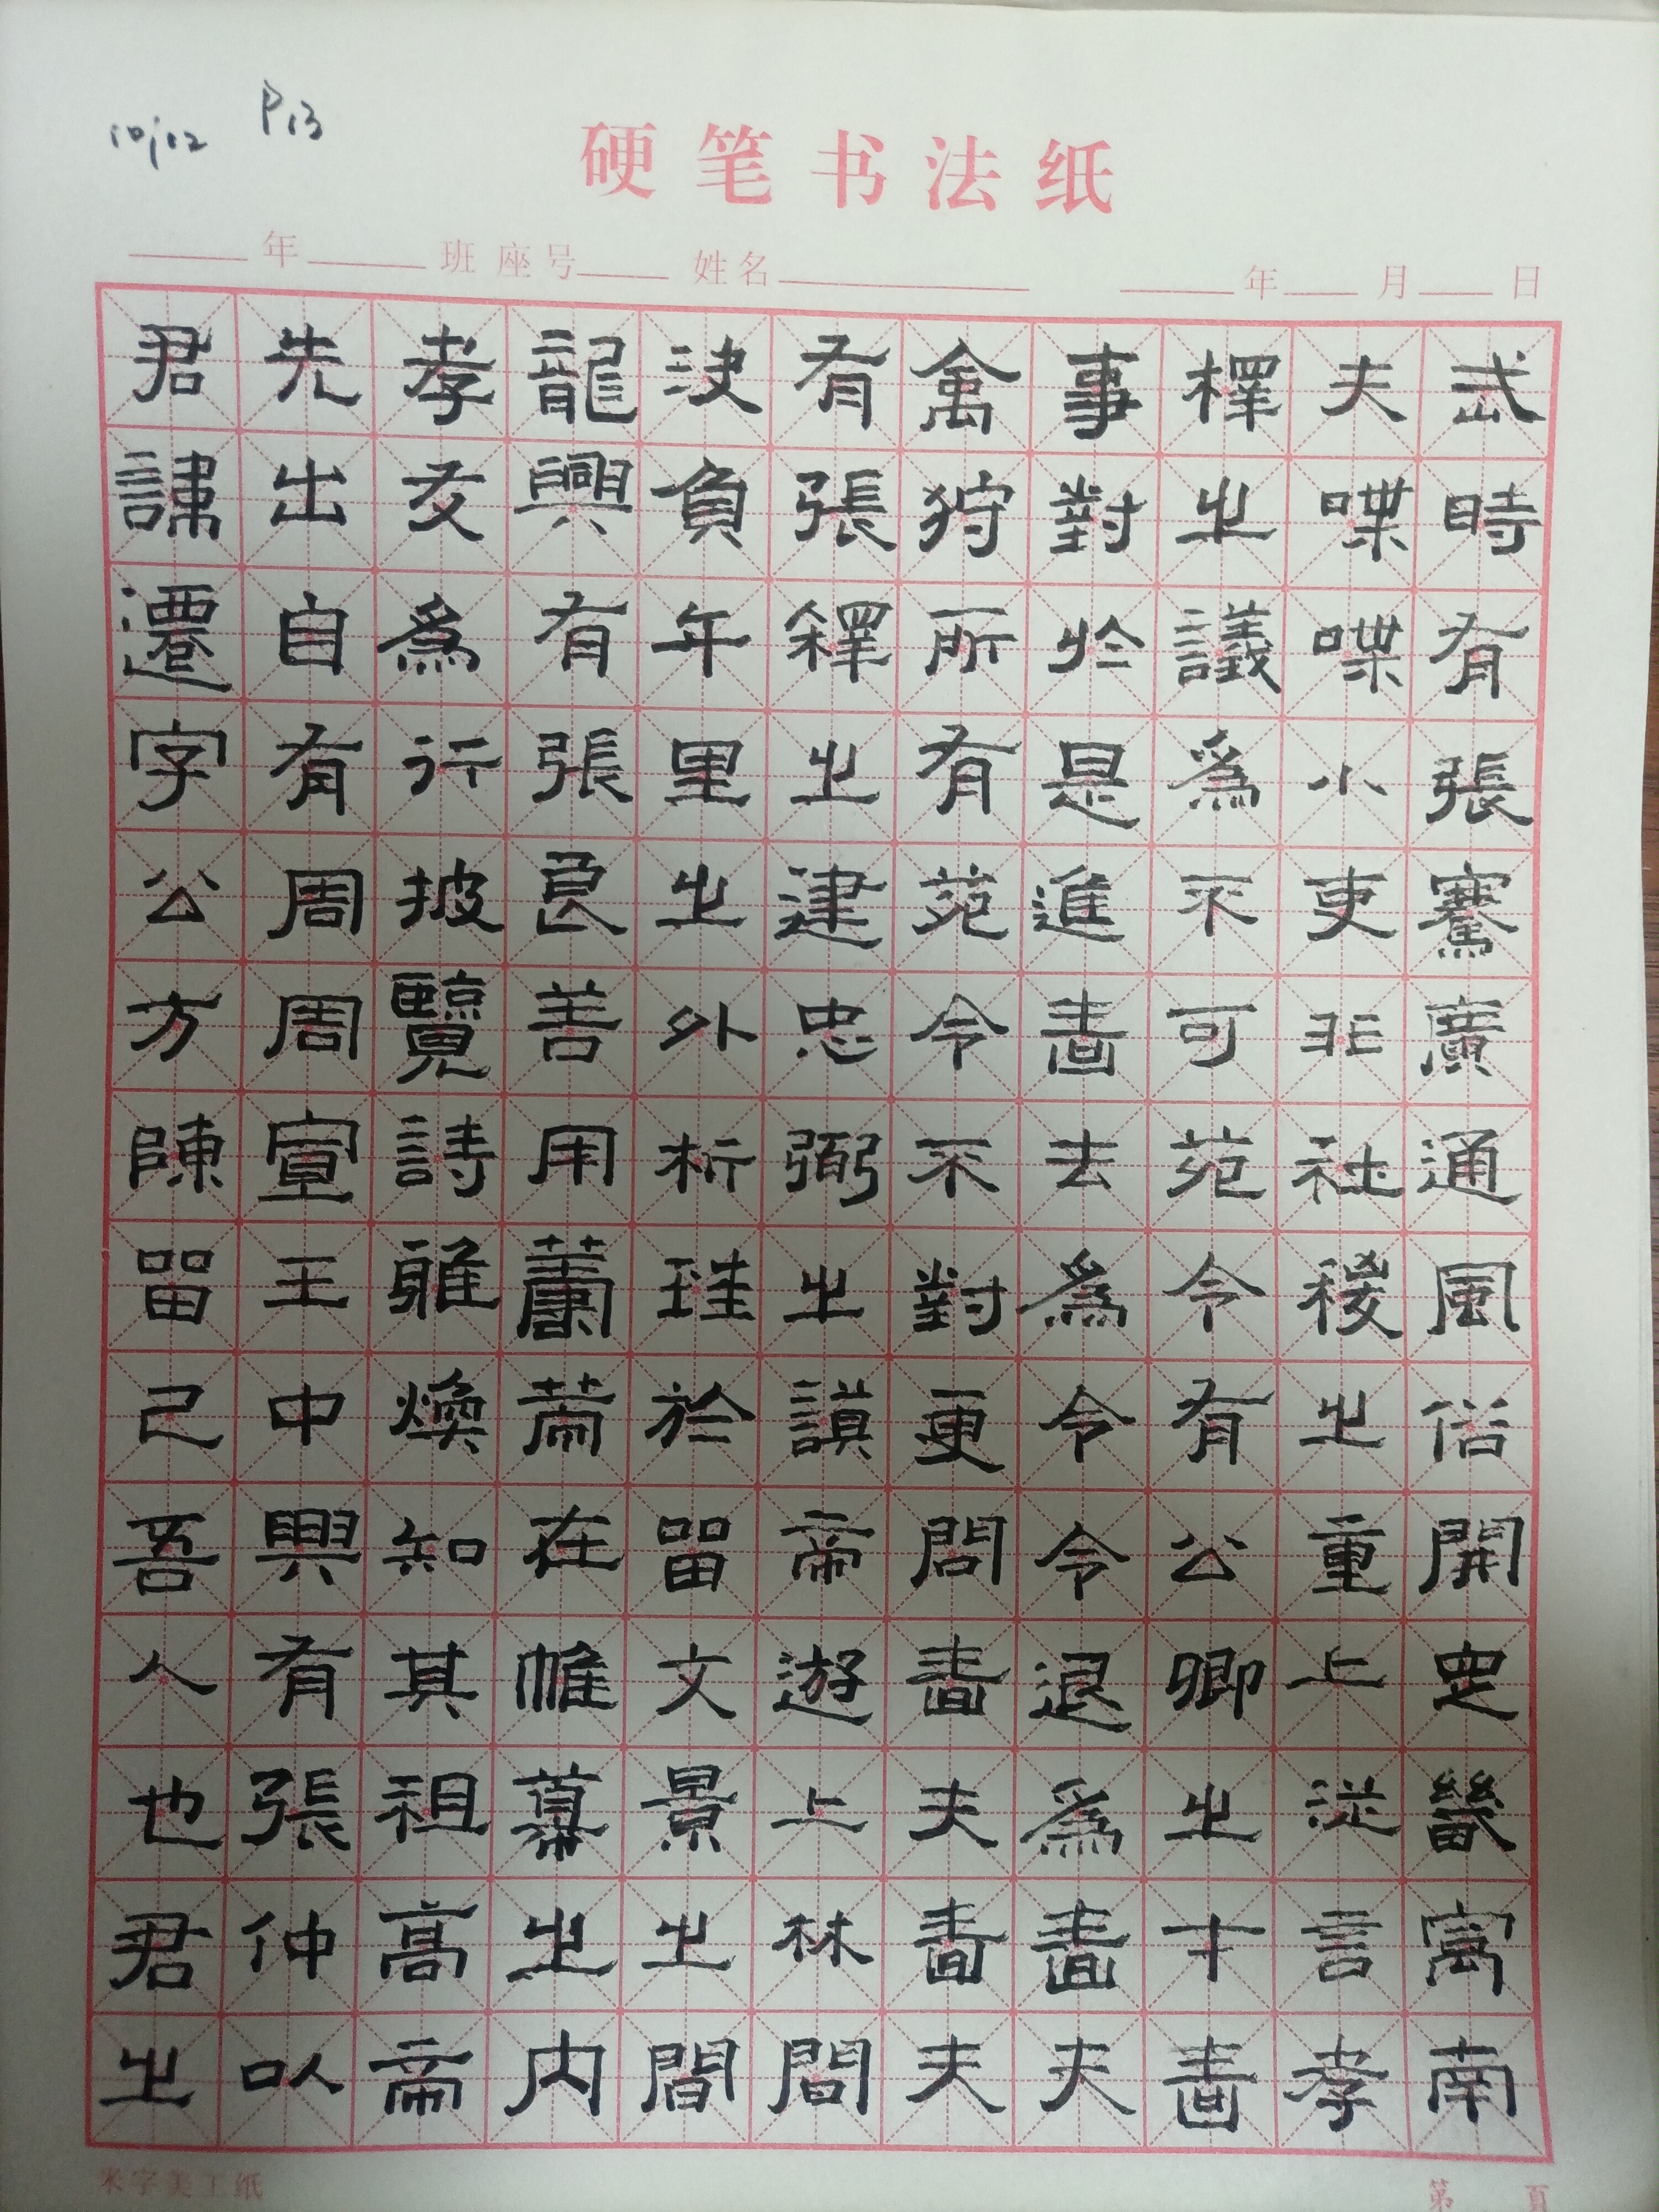 10/12 P13
硬笔书法纸
年 班 座号 姓名 年 月 日
君諱遷字公方陳留己吾人也君之
先出自有周周宣王中興有張仲以
孝友爲行披覽詩雅煥知其祖高帝
龍興有張良善用籌策在帷幕之内
決負年里之外析珪於留文景之間
有張釋之建忠弼之謨帝遊上林問
禽狩所有苑令不對更問嗇夫嗇夫
事對於是進嗇去爲令令退爲嗇夫
檡之議爲不可苑令有公卿之才嗇
夫喋喋小吏非社稷之重上從言孝
武時有張騫廣通風俗開定畿寓南
米字美工纸
第 頁